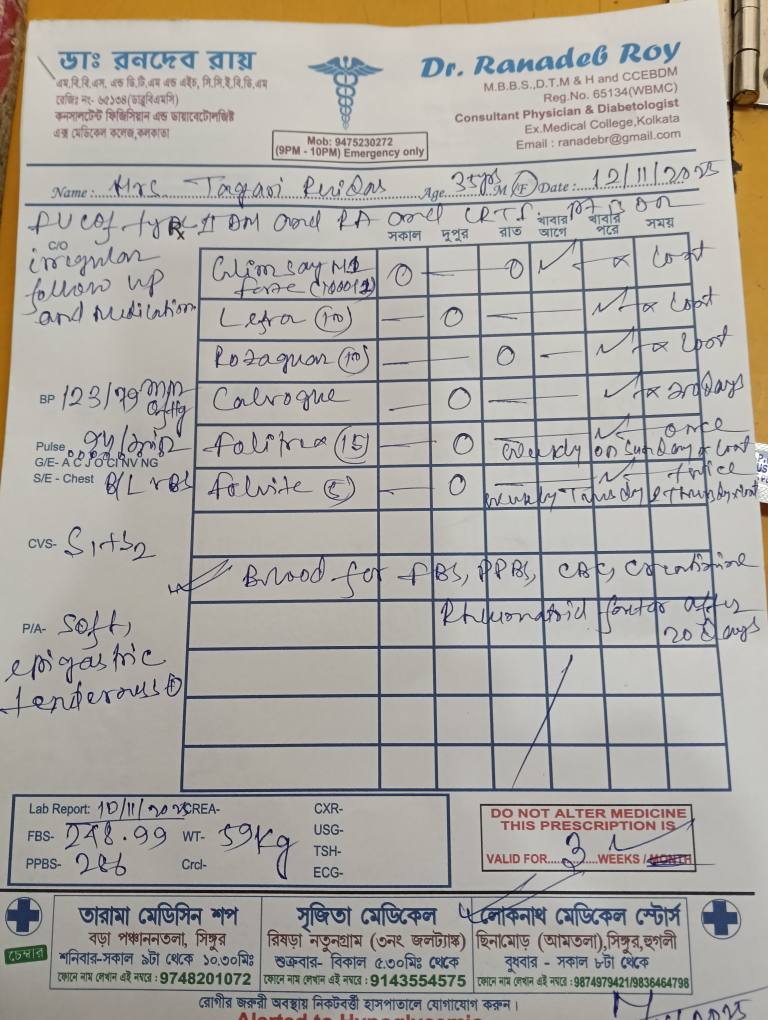 ডাঃ রনদেব রায়
এম.বি.বি.এস, এন্ড ডি.টি.এম এন্ড এইচ, সি.সি.ই.বি.ডি.এম
রেজিঃ নং- ৬৫১৩৪(ডাব্লুবিএমসি)
কনসালটেন্ট ফিজিসিয়ান এন্ড ডায়াবেটোলজিষ্ট
এক্স মেডিকেল কলেজ,কলকাতা
Mob: 9475230272
(9PM - 10PM) Emergency only
Dr. Ranadeb Roy
M.B.B.S.,D.T.M & H and CCEBDM
Reg.No. 65134(WBMC)
Consultant Physician & Diabetologist
Ex.Medical College,Kolkata
Email : ranadebr@gmail.com
Name : Mrs Tagari Age 35yrs M (F) Date : 12/11/2025
type II DM and RA and
Rx সকাল দুপুর রাত খাবার আগে খাবার পরে সময়
C/O
irregular
follow up
and medication
O — O ✓ — x Cont
(10) — O — ✓ x Cont
(10) — O — ✓ x Cont
— O — ✓ x 30 days
BP 123/79 mm of Hg
Folitrax (15) — O ✓ once
weekly on Sunday x Cont
Pulse 94/min
G/E- A C J O CI NV NG
S/E - Chest B/L VBS
Folvite (5) — O ✓ twice
weekly Tuesday & Thursday x Cont
CVS- S1+S2
Blood for FBS, PPBS, CBC, creatinine
Rheumatoid factor after
20 days
P/A- Soft,
epigastric
tenderness
Lab Report: 10/11/2025 CREA-
FBS- 248.99 WT- 59kg
PPBS- 286 Crcl-
CXR-
USG-
TSH-
ECG-
DO NOT ALTER MEDICINE
THIS PRESCRIPTION IS
VALID FOR 3 WEEKS / MONTH
চেম্বার
তারামা মেডিসিন শপ
বড়া পঞ্চাননতলা, সিঙ্গুর
শনিবার-সকাল ৯টা থেকে ১০.৩০মিঃ
ফোনে নাম লেখান এই নম্বরে : 9748201072
সৃজিতা মেডিকেল
রিষড়া নতুনগ্রাম (৩নং জলট্যাঙ্ক)
শুক্রবার- বিকাল ৫.৩০মিঃ থেকে
ফোনে নাম লেখান এই নম্বরে : 9143554575
লোকনাথ মেডিকেল স্টোর্স
ছিনামোড় (আমতলা),সিঙ্গুর,হুগলী
বুধবার - সকাল ৮টা থেকে
ফোনে নাম লেখান এই নম্বরে : 9874979421/9836464798
রোগীর জরুরী অবস্থায় নিকটবর্ত্তী হাসপাতালে যোগাযোগ করুন।